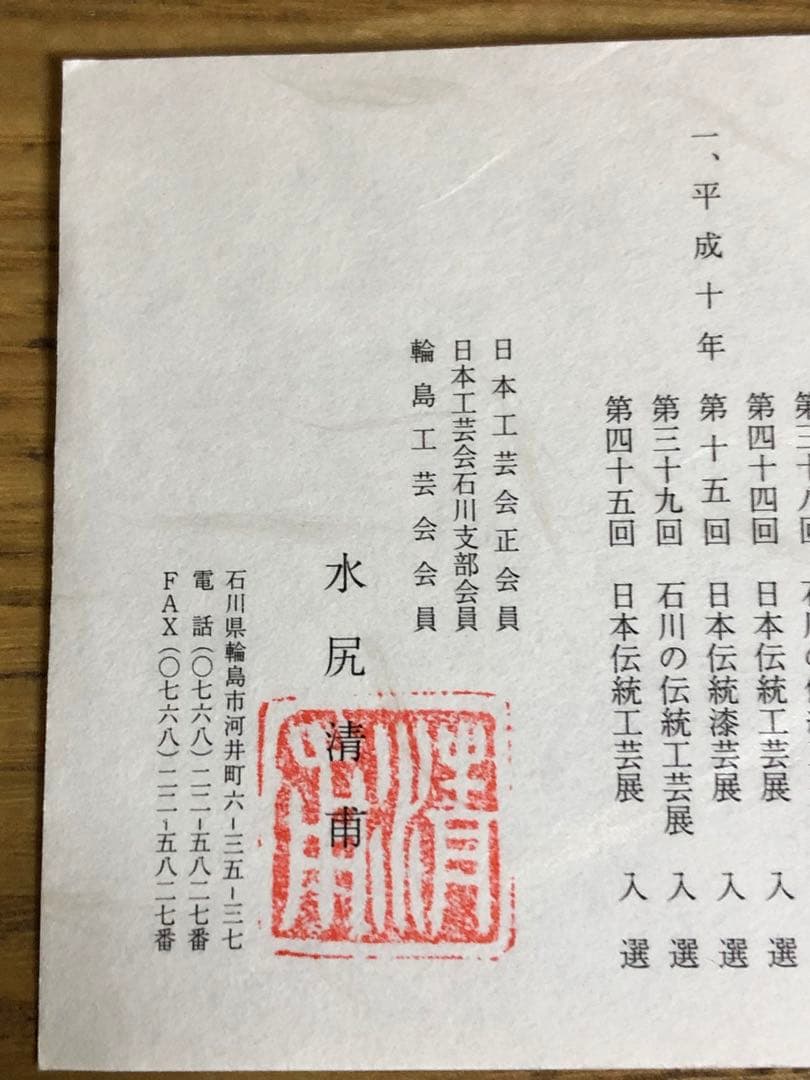 第四十四回 日本伝統工芸展 入選
一、平成十年 第十五回 日本伝統漆芸展 入選
第三十九回 石川の伝統工芸展 入選
第四十五回 日本伝統工芸展 入選
日本工芸会正会員
日本工芸会石川支部会員
輪島工芸会会員
水尻清甫
清甫
石川県輪島市河井町六-三五-三七
電話(〇七六八)二二-五八二七番
FAX(〇七六八)二二-五八二七番